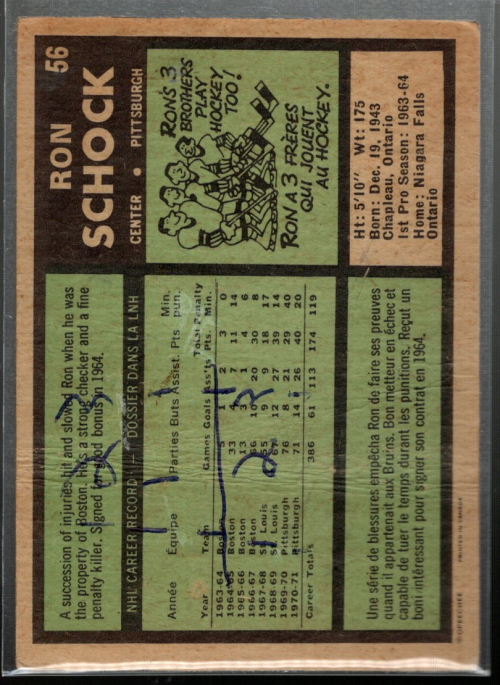 56
RON
SCHOCK
CENTER • PITTSBURGH
RON'S 3
BROTHERS
PLAY
HOCKEY
TOO!
RON A 3 FRÈRES
QUI JOUENT
AU HOCKEY.
Ht: 5'10" Wt: 175
Born: Dec. 19, 1943
Chapleau, Ontario
1st Pro Season: 1963-64
Home: Niagara Falls
Ontario
A succession of injuries hit and slowed Ron when he was
the property of Boston. He's a strong checker and a fine
penalty killer. Signed for good bonus in 1964.
NHL CAREER RECORD DOSSIER DANS LA LNH
Année Équipe Parties Buts Assist. Pts Min. pun.
Year Team Games Goals Ass'ts Total Pts. Penalty Min.
1963-64 Boston 5 1 2 3 0
1964-65 Boston 33 4 7 11 14
1965-66 Boston 13 3 1 4 6
1966-67 Boston 66 10 20 30 8
1967-68 St Louis 55 9 9 18 17
1968-69 St Louis 67 12 27 39 14
1969-70 Pittsburgh 76 8 21 29 40
1970-71 Pittsburgh 71 14 26 40 20
Career Totals 386 61 113 174 119
Une série de blessures empêcha Ron de faire ses preuves
quand il appartenait aux Bruins. Bon metteur en échec et
capable de tuer le temps durant les punitions. Reçut un
boni intéressant pour signer son contrat en 1964.
©OPEECHEE PRINTED IN CANADA